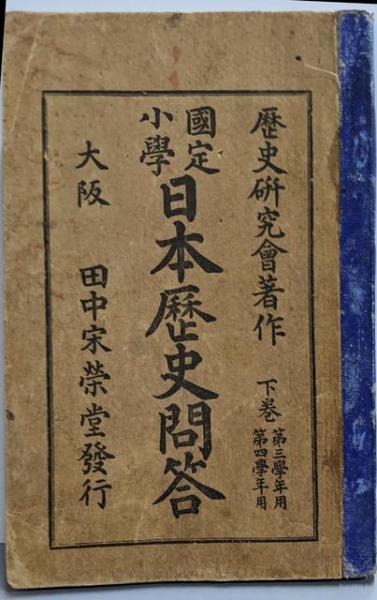 歷史硏究會著作
下巻
第三學年用
第四學年用
國定
小學
日本歷史問答
大阪
田中宋榮堂發行